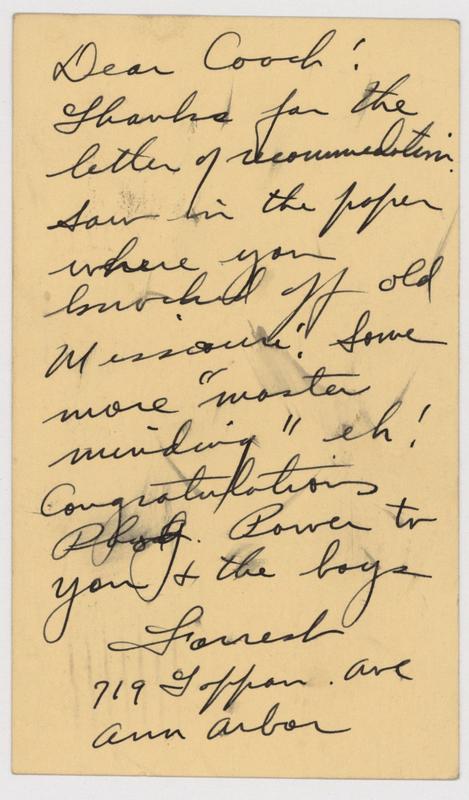 Dear Coach!
Thanks for the
letter of recommedation.
Saw in the paper
where you
knocked off old
Missouri! Some
more "master
minding" eh!
Congratulations
Phog. Power to
you & the boys
Forrest
719 Toppan. ave
ann arbor